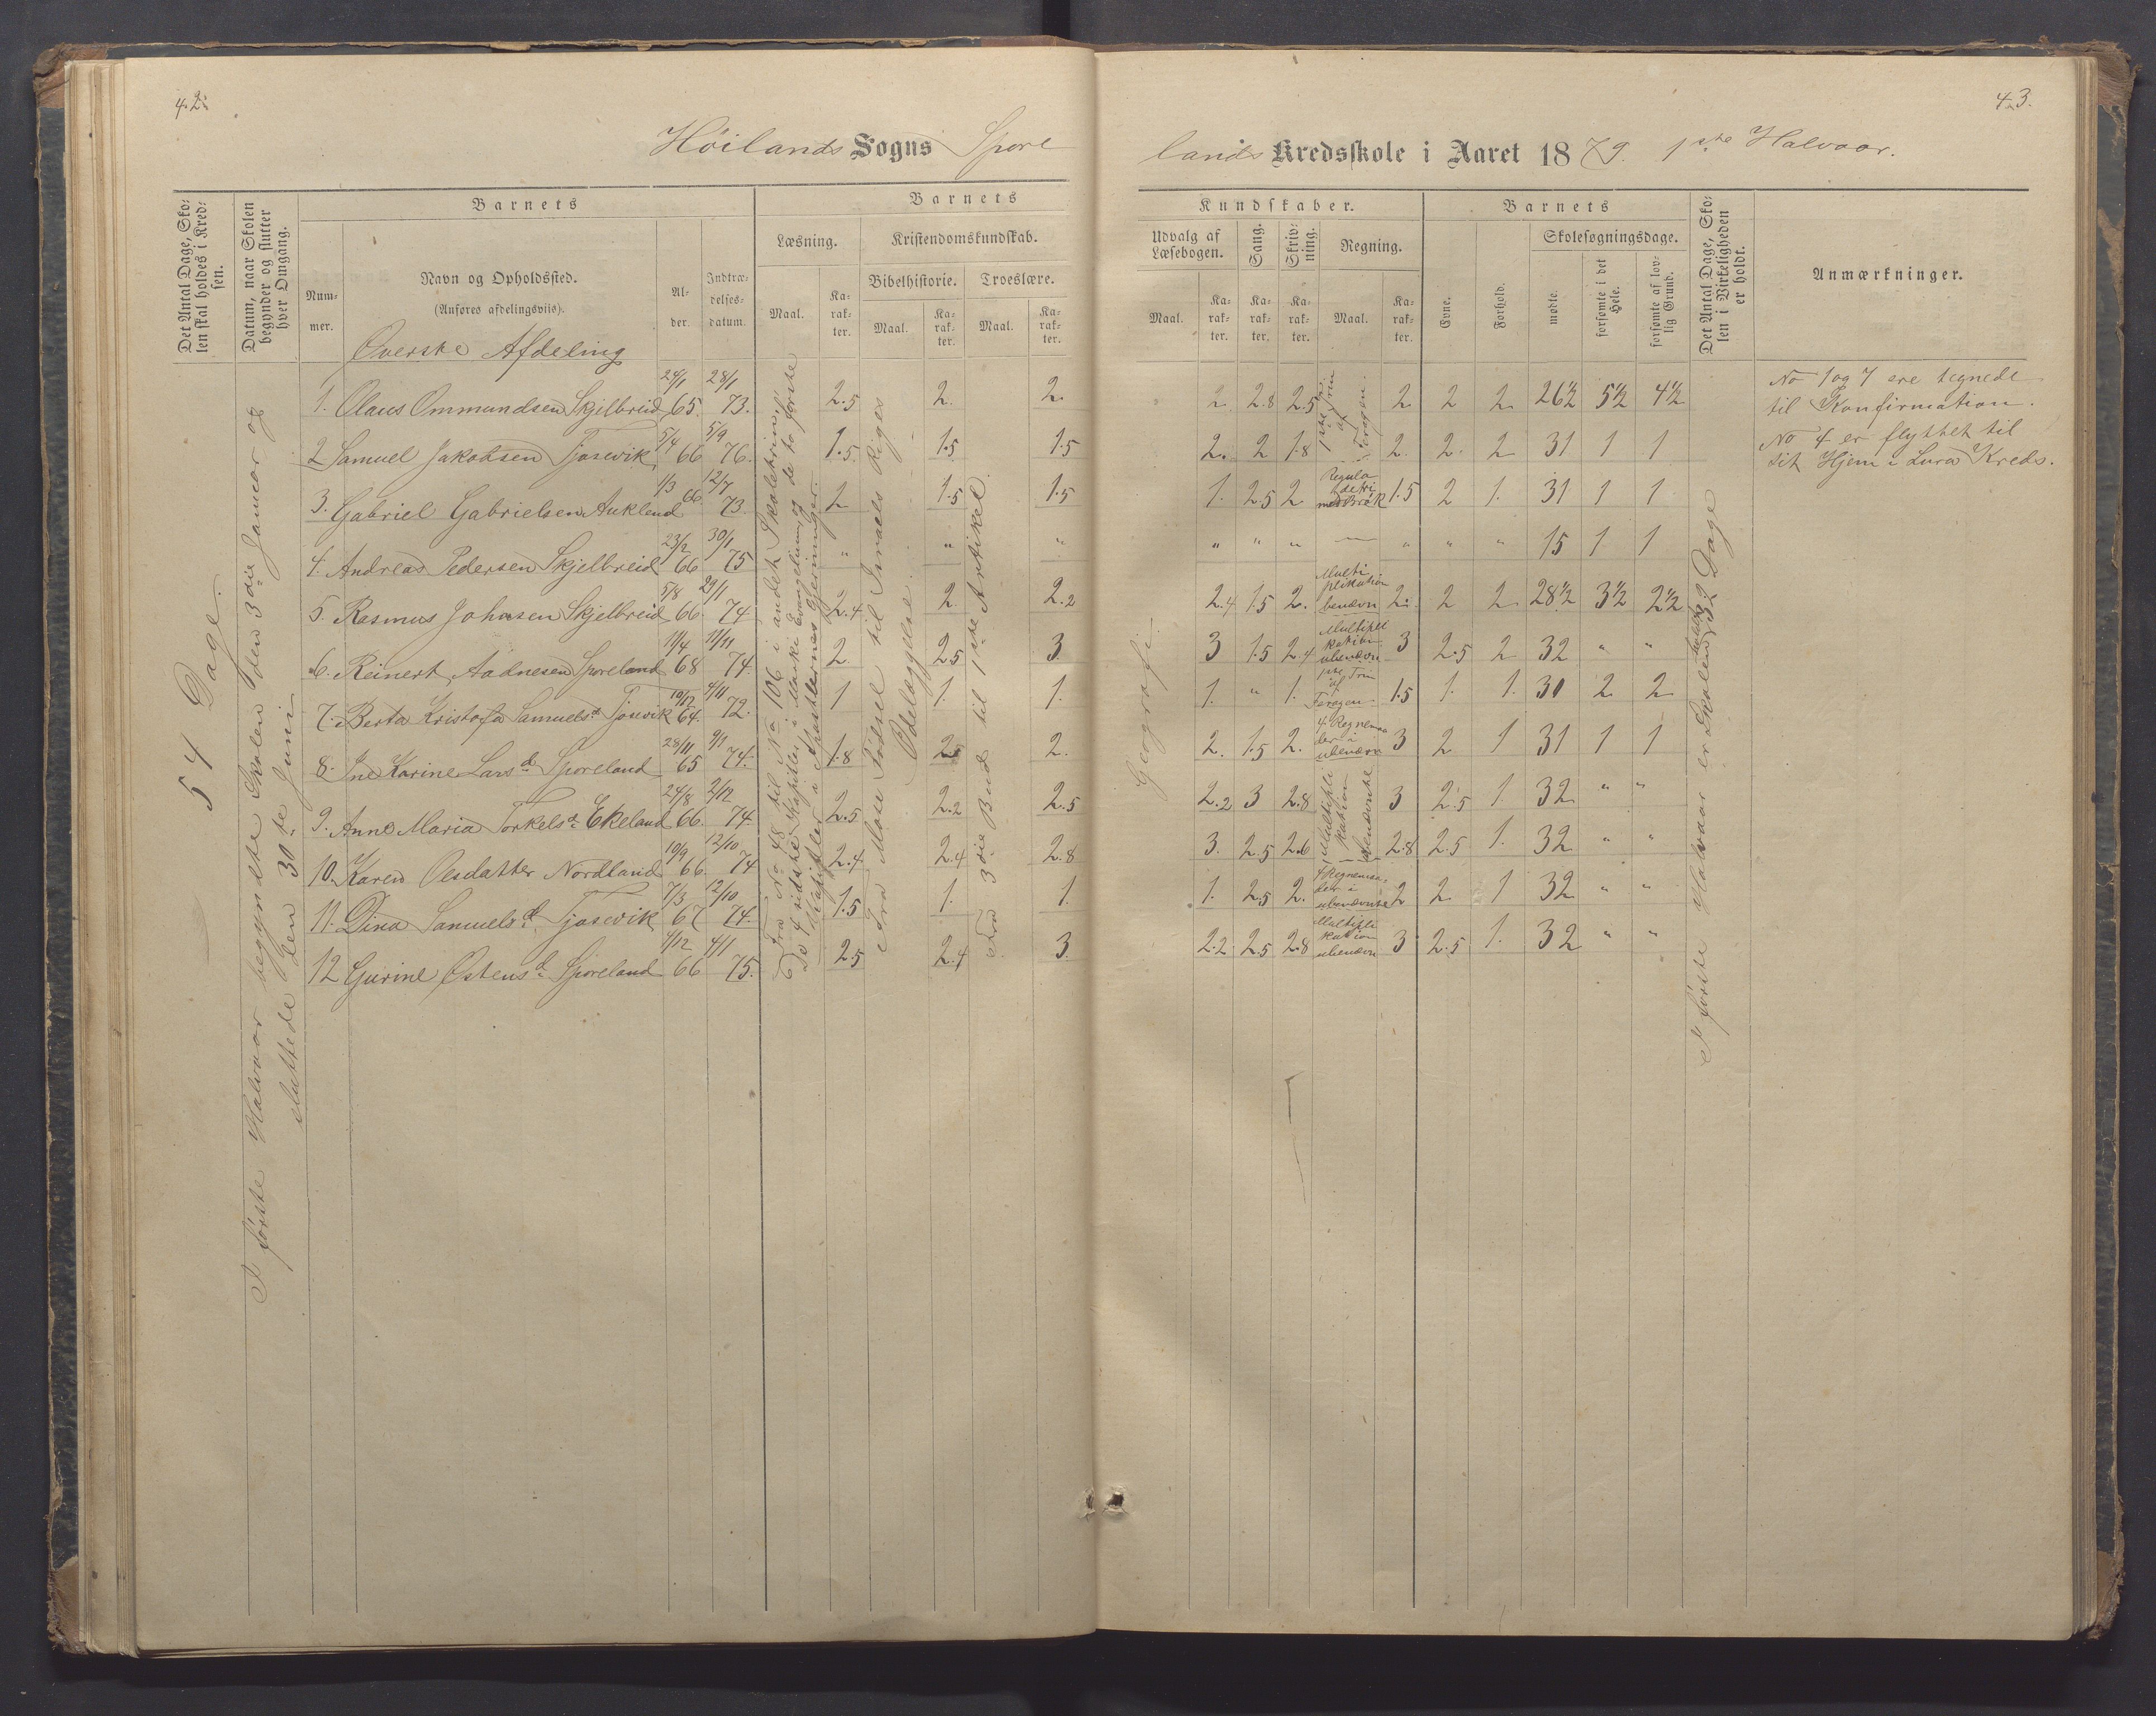 42.
Høilands Sogns Spore
Det Antal Dage, Sko-
len skal holdes i Kred-
sen.
Datum, naar Skolen
begynder og slutter
hver Omgang.
Barnets
Barnets
Num-
mer.
Navn og Opholdssted.
(Anføres afdelingsviis).
Al-
der.
Indtræ-
delses-
datum.
Læsning.
Kristendomskundskab.
Maal.
Ka-
rak-
ter.
Bibelhistorie.
Troeslære.
Maal.
Ka-
rak-
ter.
Maal.
Ka-
rak-
ter.
Øverste Afdeling
54 Dage.
I første Halvaar begyndte Skolen den 3die Januar og
sluttede den 30te Juni
1. Olaus Ommundsen Skjelbreid 24/1 65. 28/1 73. 2.5 2. 2.
2 Samuel Jakobsen Tjosevik 5/4 66 5/9 76. 1.5. 1.5 1.5
3. Gabriel Gabrielsen Aukland 1/3 66. 12/7 73. 2 1.5 1.5
4. Andreas Pedersen Skjelbreid 23/2 66 30/1 75 " " "
5. Rasmus Johnsen Skjelbreid 5/8 66. 29/1 74. 2.4 2. 2.2
6. Reinert Aadnesen Sporeland 11/4 68 11/11 74. 2. 2.5 3.
7. Berta Kristofa Samuelsd. Tjosevik 10/12 64. 4/11 72. 1 1. 1.
8. Ine Karine Larsd. Sporeland 28/11 65 9/1 74. 1.8 2. 2.
9. Anne Maria Torkelsd. Ekeland 24/8 66. 2/12 74. 2.5 2.2 2.5
10. Karen Olsdatter Nordland 10/9 66. 12/10 74 2.4 2.4 2.8
11. Dina Samuelsd. Tjosevik 7/3 67 12/10 74. 1.5 1. 1.
12 Gurine Østensd. Sporeland 4/12 66 4/1 75. 2.5 2.4 3.
Fra No 48 til No 106 i andet Skoletrin,
De 4 sidste Kapitler i Marki Evangelium og de to første
Kapitler i Apostlernes Gjerninger.
Fra Mose Fødsel til Israels Riges
Ødelæggelse.
Fra 3die Bud til 1ste Artikel.
43.
lands Kredsskole i Aaret 1879. 1ste Halvaar.
Kundskaber.
Barnets
Udvalg af
Læsebogen.
Sang.
Skriv-
ning.
Regning.
Maal.
Ka-
rak-
ter.
Ka-
rak-
ter.
Ka-
rak-
ter.
Maal.
Ka-
rak-
ter.
Evne.
Forhold.
Skolesøgningsdage.
mødte.
forsømte i det
Hele.
forsømte af lov-
lig Grund.
Det Antal Dage, Sko-
len i Virkeligheden
er holdt.
Anmærkninger.
Geografi.
2. 2.8 2.5 1ste Trin af Forogen. 2. 2 2 26½ 5½ 4½
2. 2 1.8 2. 2. 2 31 1 1
1. 2.5 2. Regula detri med Brøk 1.5 2 1. 31 1 1
" " " — " " " 15 1 1
2.4 1.5 2. Multi plikation benævn 2. 2 2 28½ 3½ 2½
3 1.5 2.4 Multipli kation ubenævn 3 2.5 2 32 " "
1. " 1. 1ste Trin af Forogen. 1.5 1. 1. 30 2 2
2. 1.5 2. 4 Regnemaa der i ubenævn 3 2 1 31 1 1
2.2 3 2.8 Multipli kation ubenævnte 3 2.5 1. 32 " "
3. 2.5 2.6 2.8 2.5 1. 32 " "
1. 2.5 2. 4 Regnemaa- der i ubenævnte 2 2 1 32 " "
2.2 2.5 2.8 Multipli kation ubenævn 3 2.5 1. 32 " "
I første Halvaar er Skolen holdt 32 Dage
No 1 og 7 ere tegnede
til Konfirmation.
No 4 er flyttet til
sit Hjem i Lura Kreds.